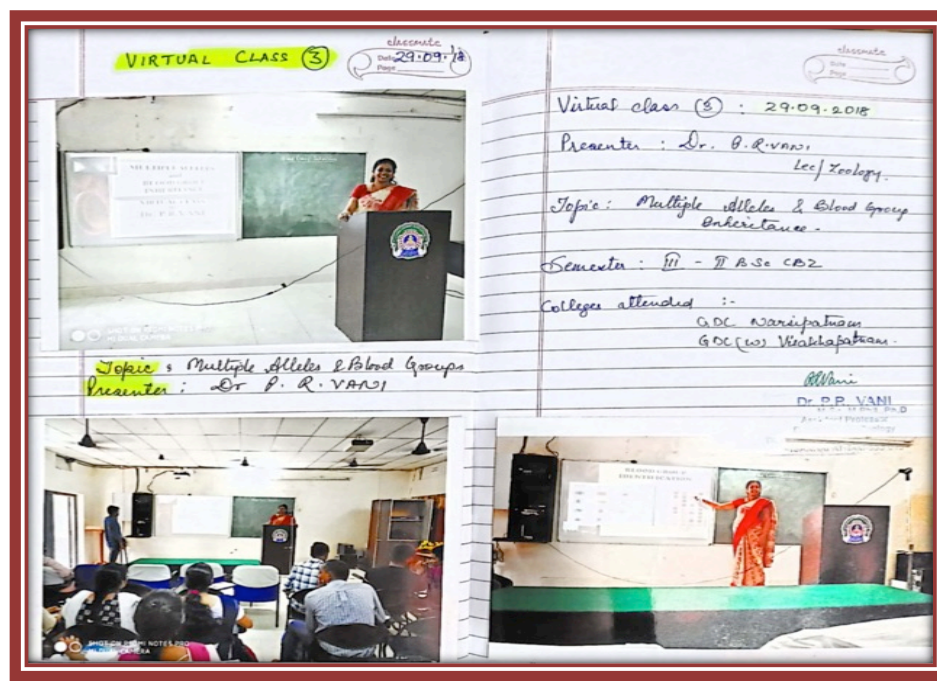 VIRTUAL CLASS ③
classmate
Date 29.09.18
Page
MULTIPLE ALLELES
and
BLOOD GROUP
INHERITANCE
Dr. P.R.VANI
SHOT ON REDMI NOTE 5 PRO
MI DUAL CAMERA
Topic : Multiple Alleles & Blood Groups
Presenter : Dr P. R. VANI
SHOT ON REDMI NOTE 5 PRO
MI DUAL CAMERA
classmate
Date
Page
Virtual class ③ : 29.09.2018
Presenter : Dr. P.R.VANI
Lec/Zoology.
Topic : Multiple Alleles & Blood Group
Inheritance.
Semester : III - II B Sc CBZ
Colleges attended :-
GDC Narsipatnam
GDC(W) Visakhapatnam.
PRVani
Dr. P.R. VANI
Ph.D
Assistant Professor
Zoology
BLOOD GROUP
IDENTIFICATION